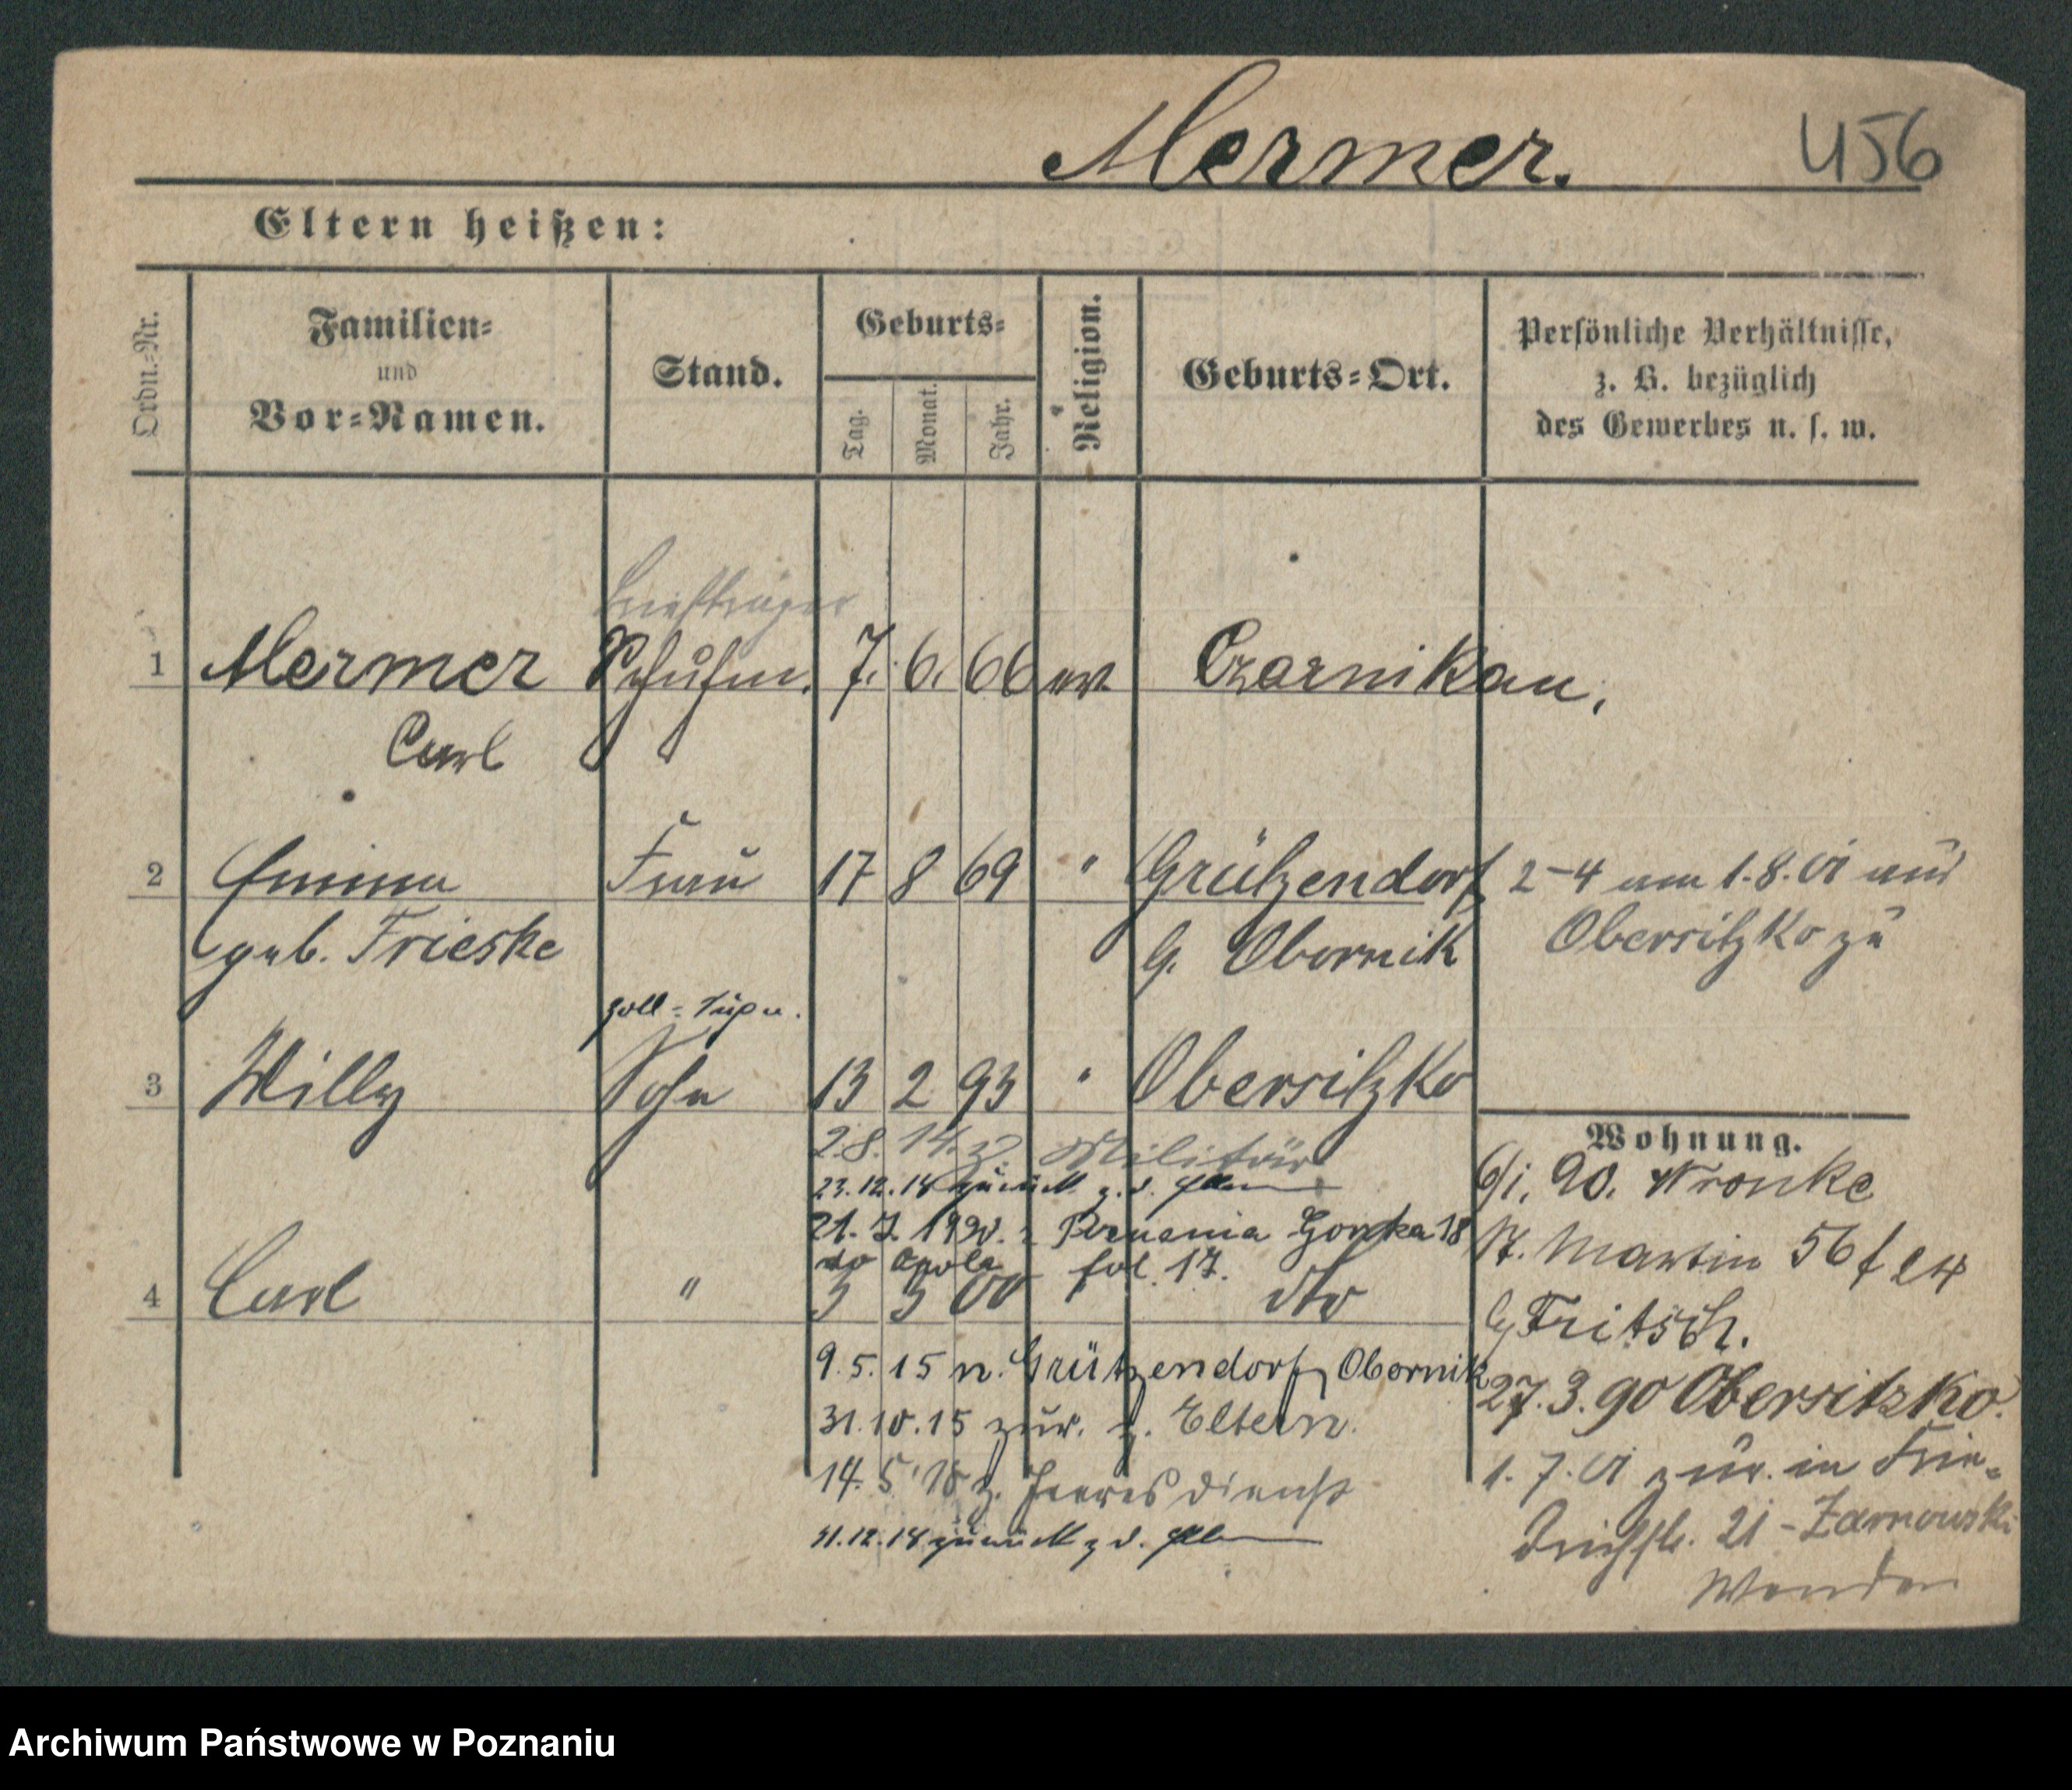 Mermer. 456
Eltern heißen:
Ordn.-Nr.
Familien-
und
Vor-Namen.
Stand.
Geburts-
Tag.
Monat.
Jahr.
Religion.
Geburts-Ort.
Persönliche Verhältnisse,
z. B. bezüglich
des Gewerbes u. s. w.
Briefträger
1 Mermer Schuhm. 7. 6. 66 ev. Czarnikau,
Carl
2 Emma Frau 17 8 69 " Grützendorf 2-4 am 1.8. 01 aus
geb. Frieske G. Obornik Obersitzko zu
Zoll-Sup.
3 Willy Sohn 13 2 93 " Obersitzko
Wohnung.
2.8.14 z. Militär
23.12.18 zurück z. d. Eltern
21. 7. 1920. Gorska 18
fol. 17.
4 Carl " 3 3 00 dto
9.5.15 n. Grützendorf, Obornik
31.10.15 zur. z. Eltern.
14.5.18 z. Heeresdienst
31.12.18 zurück z d. Eltern
6/1. 90. Wronke
St. Martin 56
Fritsch.
27.3.90 Obersitzko.
1.7.01 zur. in Frie-
drichstr. 21 - Zarnowski
Wenden